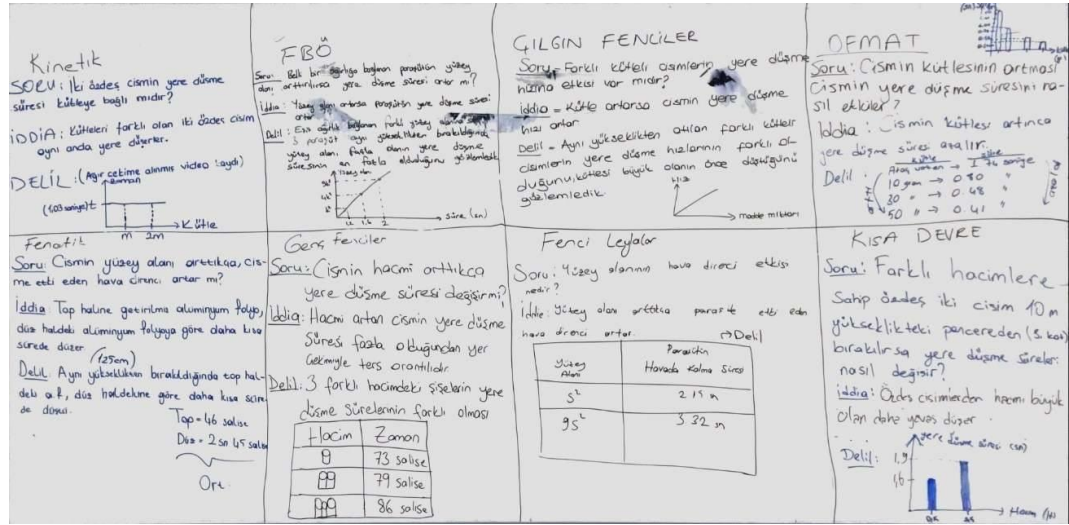 Kinetik
SORU: İki özdeş cismin yere düşme
süresi kütleye bağlı mıdır?
İDDİA: Kütleleri farklı olan iki özdeş cisim
aynı anda yere düşerler.
DELİL: (Ağır çekime alınmış video)
Zaman
t
Kütle
m 2m
FBÖ
Soru: Belli bir ağırlığa bağlanan paraşütün yüzey
alanı arttırılırsa yere düşme süresi artar mı?
İddia: Yüzey alanı artarsa paraşütün yere düşme süresi
artar
Delil: Eşit ağırlık bağlanan farklı yüzey alanına
3 paraşüt aynı yükseklikten bırakıldığında
yüzey alanı fazla olanın yere düşme
süresinin en fazla olduğunu gözlemledik
Yüzey alanı
süre (sn)
ÇILGIN FENCİLER
Soru - Farklı kütleli cisimlerin yere düşme
hızına etkisi var mıdır?
iddia - Kütle artarsa cismin yere düşme
hızı artar
Delil - Aynı yükseklikten atılan farklı kütleli
cisimlerin yere düşme hızlarının farklı ol-
duğunu, kütlesi büyük olanın önce düştüğünü
gözlemledik
Hız
madde miktarı
Soru: Cismin kütlesinin artması
cismin yere düşme süresini na-
sıl etkiler?
Iddia: Cismin kütlesi artınca
yere düşme süresi azalır.
Delil
kütle süre
10 gram → 0.80 "
30 " → 0.48 "
50 " → 0.41 "
Fenatik
Soru: Cismin yüzey alanı arttıkça, cis-
me etki eden hava direnci artar mı?
İddia: Top haline getirilmiş alüminyum folyo,
düz haldeki alüminyum folyoya göre daha kısa
sürede düşer.
(125cm)
Delil: Aynı yükseklikten bırakıldığında top hal-
deki a.f, düz haldekine göre daha kısa süre
de düştü.
Top = 46 salise
Düz = 2 sn 45 salise
Ort.
Genç fenciler
Soru: Cismin hacmi arttıkça
yere düşme süresi değişir mi?
İddia: Hacmi artan cismin yere düşme
Süresi fazla olduğundan yer
Çekimiyle ters orantılıdır.
Delil: 3 farklı hacimdeki şişelerin yere
düşme sürelerinin farklı olması
Hacim Zaman
73 salise
79 salise
86 salise
Fenci Leylalar
Soru: Yüzey alanının hava direnci etkisi
nedir?
İddia: Yüzey alanı arttıkça paraşüte etki eden
hava direnci artar.
→ Delil
Yüzey Alanı Paraşütün Havada Kalma Süresi
S² 2.15 sn
9S² 3.32 sn
KISA DEVRE
Soru: Farklı hacimlere
Sahip özdeş iki cisim 10 m
yükseklikteki pencereden (3. kat)
bırakılırsa yere düşme süreleri
nasıl değişir?
iddia: Özdeş cisimlerden hacmi büyük
olan daha yavaş düşer.
Delil:
yere düşme süresi (sn)
1,9
1,6
Hacim